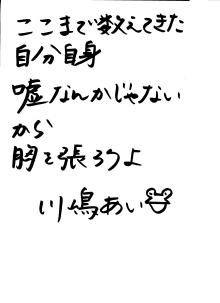 ここまで数えてきた
自分自身
嘘なんかじゃない
から
胸を張ろうよ
川嶋あい